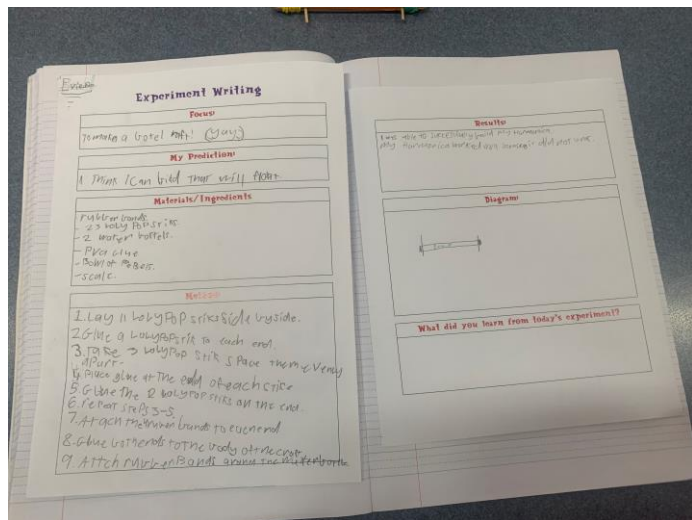 Experiment Writing
Focus:
To make a botel raft! (Yay!)
My Prediction:
I Think I can bild that will float
Materials/Ingredients
rubber bands
- 23 lolyPoP stiks.
- 2 water bottels.
- PVA Glue
- Scale.
Method:
1. Lay 11 lolyPoP stiks side by side.
2 Glue a lolyPoP stik to each end.
3. Take 3 lolyPoP stik space them evenly
apart.
4. Place glue at the end of each stick
5. Glue the 2 lolyPoP stiks on the end.
6. repeat steps 3-5.
7. Attach the rubber bands to
8. Glue both ends to the body of the
9. Attch rubber Bands around the
Results:
I was able to build my
my worked and did not sink.
Diagram:
What did you learn from today's experiment?